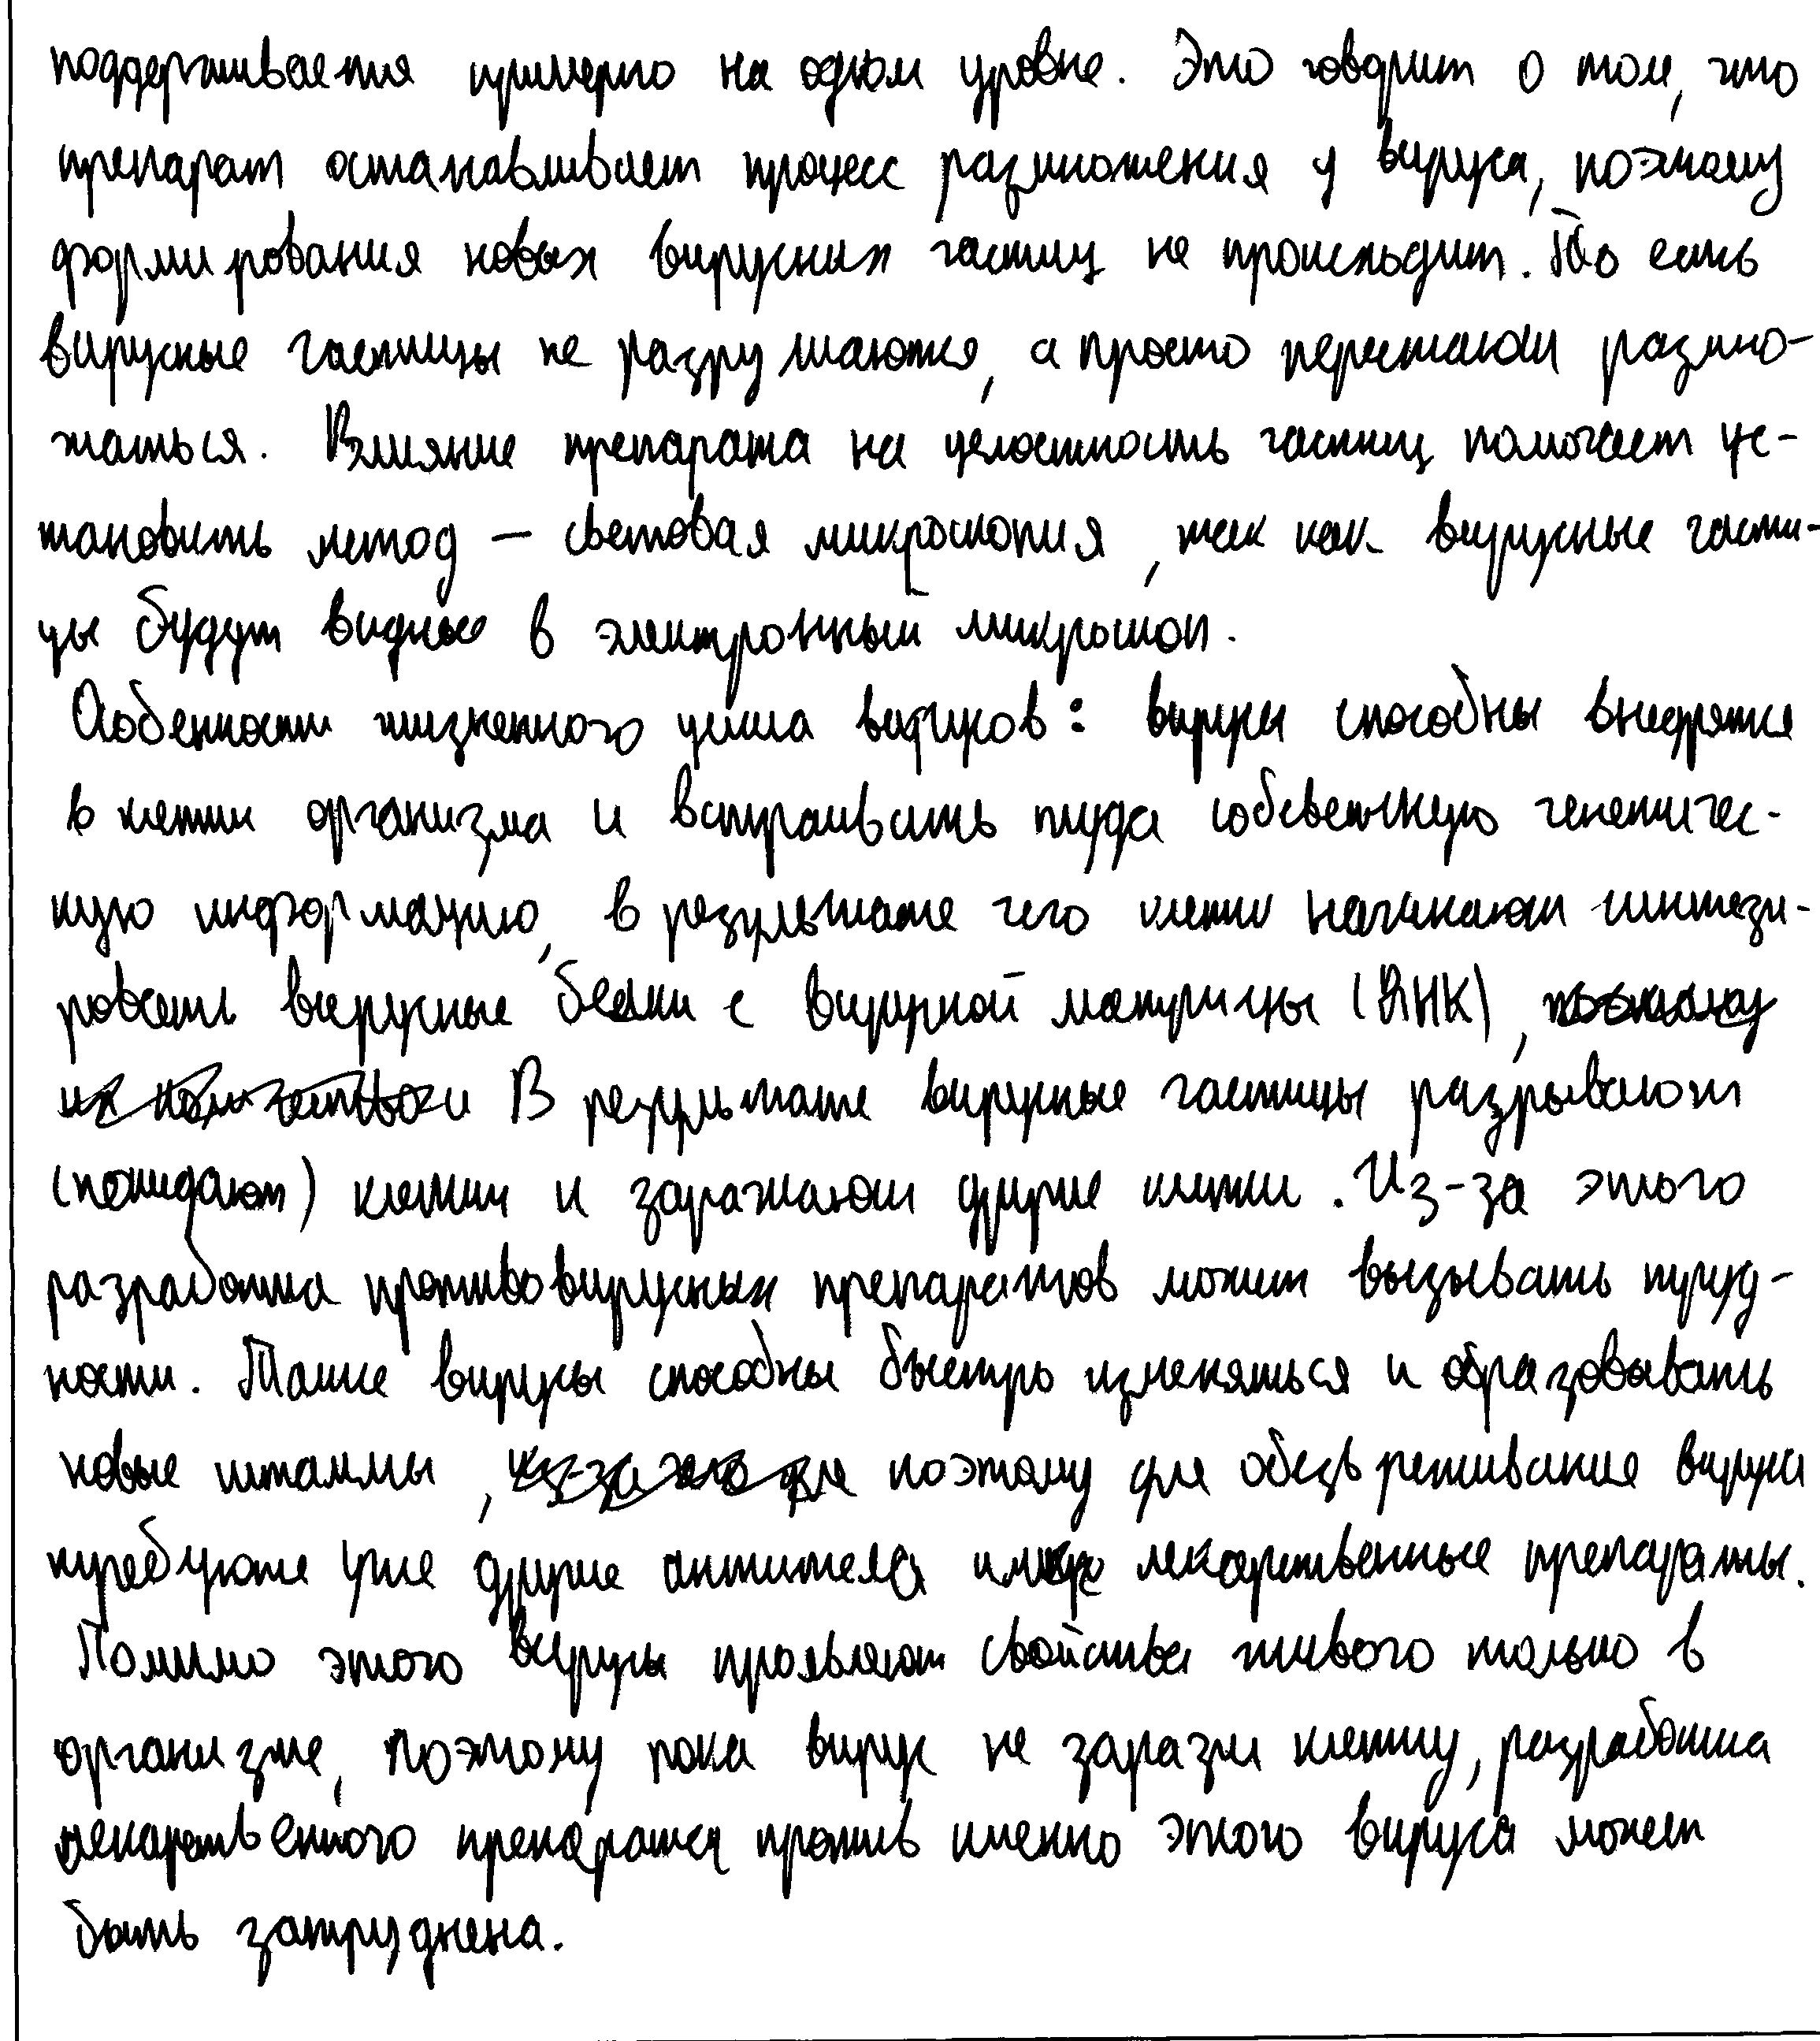 поддерживается примерно на одном уровне. Это говорит о том, что
препарат останавливает процесс размножения у вируса, поэтому
формирования новых вирусных частиц не происходит. То есть
вирусные частицы не разрушаются, а просто перестают размно-
жаться. Влияние препарата на целостность частиц помогает ус-
тановить метод – световая микроскопия, так как вирусные части-
цы будут видные в электронный микроскоп.
Особенности жизненного цикла вирусов: вирусы способны внедрятся
в клетки организма и встраивать туда собственную генетичес-
кую информацию, в результате чего клетки начинают синтези-
ровать вирусные белки с вирусной матрицы (ДНК),
В результате вирусные частицы разрывают
(покидают) клетки и заражают другие клетки. Из-за этого
разработка противовирусных препаратов может вызывать труд-
ности. Также вирусы способны быстро изменяться и образовывать
новые штаммы, поэтому для обезвреживания вируса
требуются уже другие антитела и лекарственные препараты.
Помимо этого вирусы проявляют свойства живого только в
организме, поэтому пока вирус не заразил клетку, разработка
лекарственного препарата против именно этого вируса может
быть затруднена.